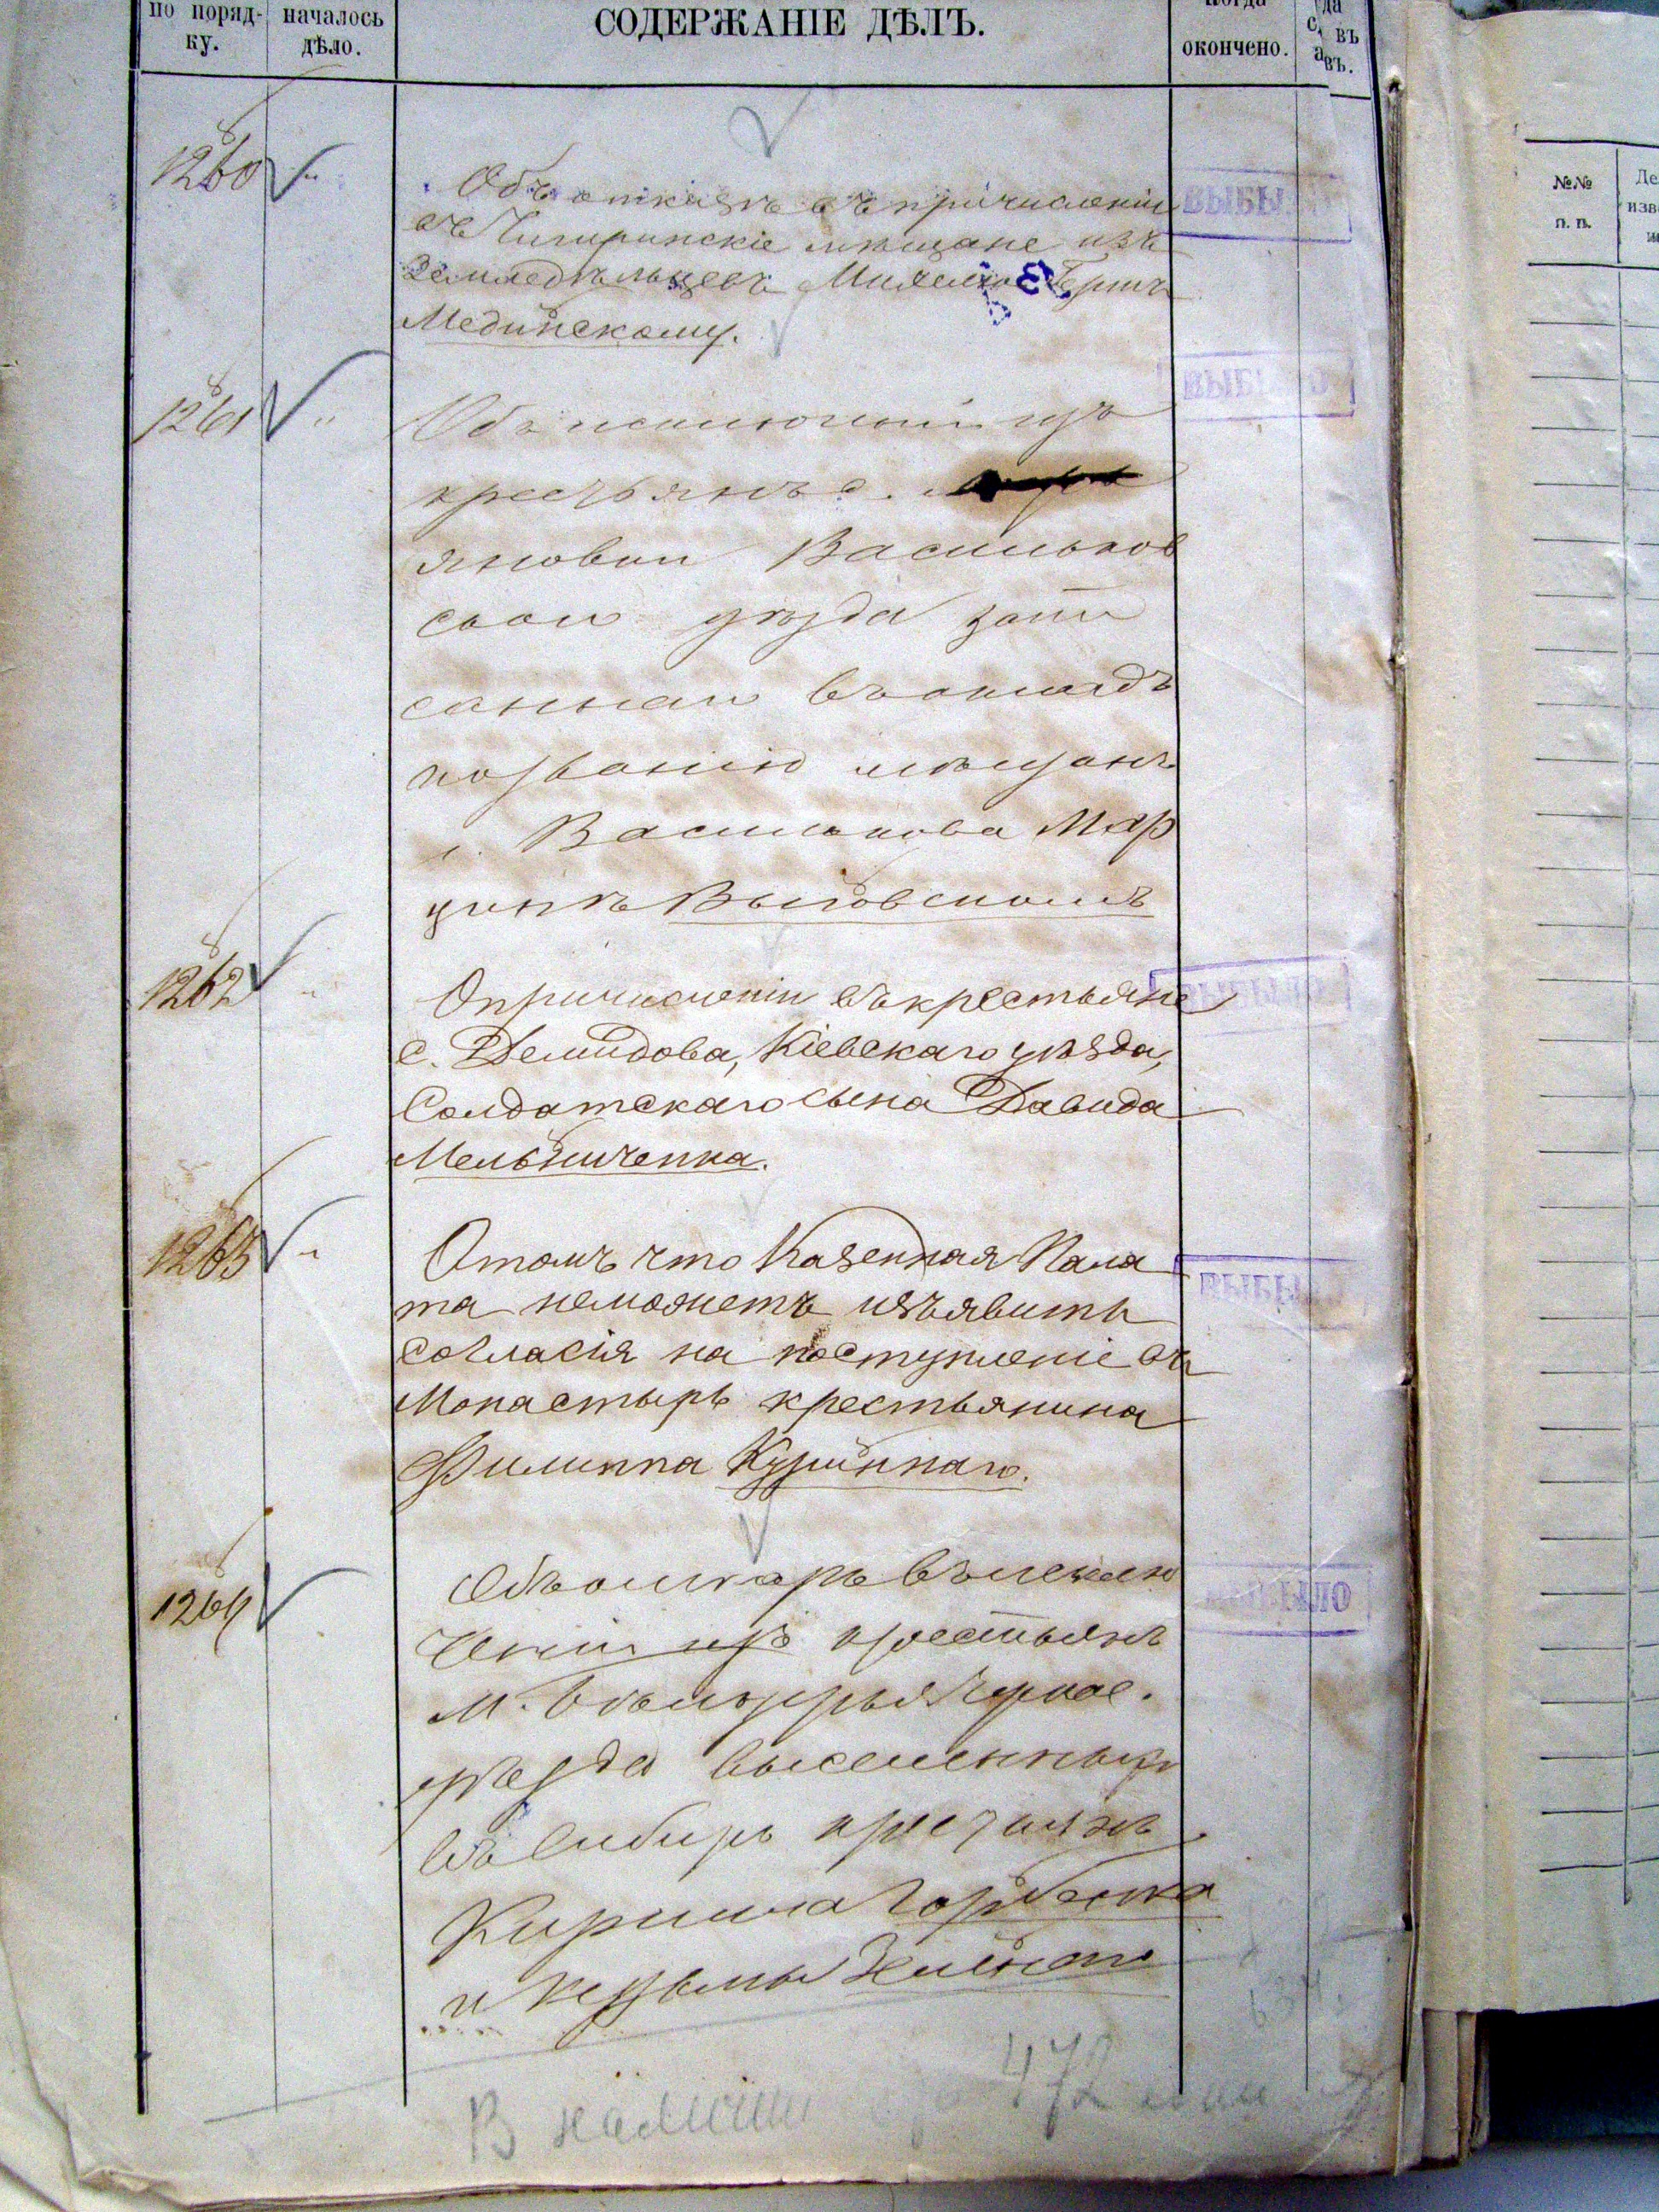 по поряд-
ку.
началось
дѣло.
СОДЕРЖАНІЕ ДѢЛЪ.
Когда
окончено.
1260
Объ отказѣ въ причисленіи
въ Чигиринскіе мѣщане изъ
Земледѣльцевъ
Мединскому.
ВЫБЫЛО
1261
Объ исключеніи изъ
крестьянъ с.
яновки Васильков
скаго уѣзда запи
саннаго въ окладъ
по званію мѣщанъ
г. Василькова Мар
цинѣ Выговскомъ
ВЫБЫЛО
1262
О причисленіи въ крестьяне
с. Демидова, Кіевскаго уѣзда,
Солдатскаго сына Давида
Мельниченка.
ВЫБЫЛО
1263
О томъ что Казенная Пала
та неможетъ изъявить
согласія на поступленіе въ
Монастырь крестьянина
Филиппа Куриннаго.
ВЫБЫЛО
1264
ченіи изъ крестьянъ
м.
уѣзда выселенныхъ
въ Сибирь крестьянъ
Кирилла Горбенка
и Кузьмы
ВЫБЫЛО
В наличии 472
№№
п. п.